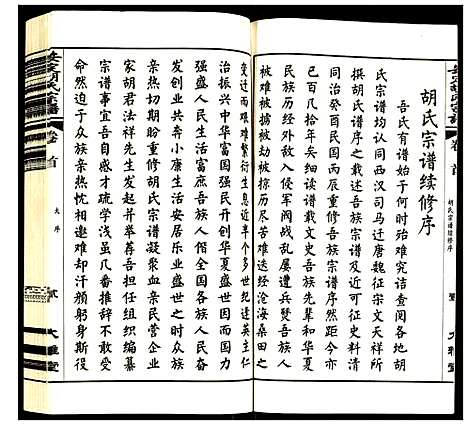 胡氏宗谱续修序
吾氏有谱始于何时殆难究诘查阅各地胡
氏宗谱均认同西汉司马迁唐魏征宋文天祥所
撰胡氏谱序之载述吾族宗谱序及近可征史料清
同治癸酉民国戊辰重修吾族宗谱序然距今亦
已百几拾年矣细读谱载文史吾族先民和华夏
民族历经外敌入侵军阀战乱屡遭兵燹吾族人
被难被掳被劫被掠历尽苦难迭经沧海桑田之
变迁而艰难繁衍生息近半个多世纪逢英主仁
治振兴中华富国强民开创华夏盛世因而国力
强盛人民生活富庶吾族人偕全国各族人民奋
发创业共奔小康生活安居乐业盛世之时众族
亲热切期盼重修胡氏宗谱凝聚血亲民营企业
家胡君法祥先生发起并举荐吾担任组织编纂
宗谱事宜吾自感才疏学浅几番推辞不敢受
命然迫于众族亲热忱相邀难却汗颜躬身斯役
卷首
大序
贰
大雅堂
卷首
胡氏宗谱续修序
壹
大雅堂